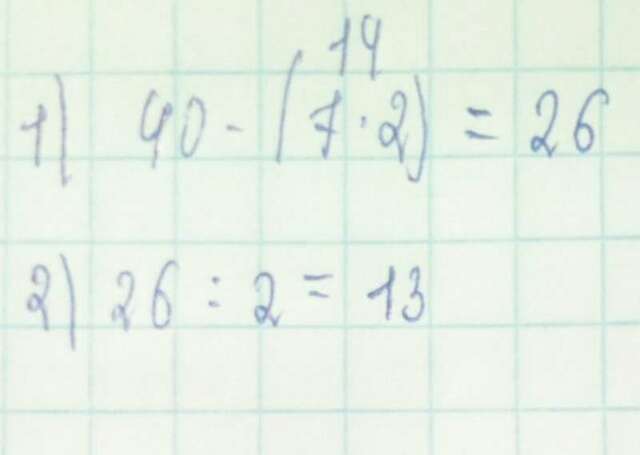 14
1) 40 - (7 · 2) = 26
2) 26 : 2 = 13